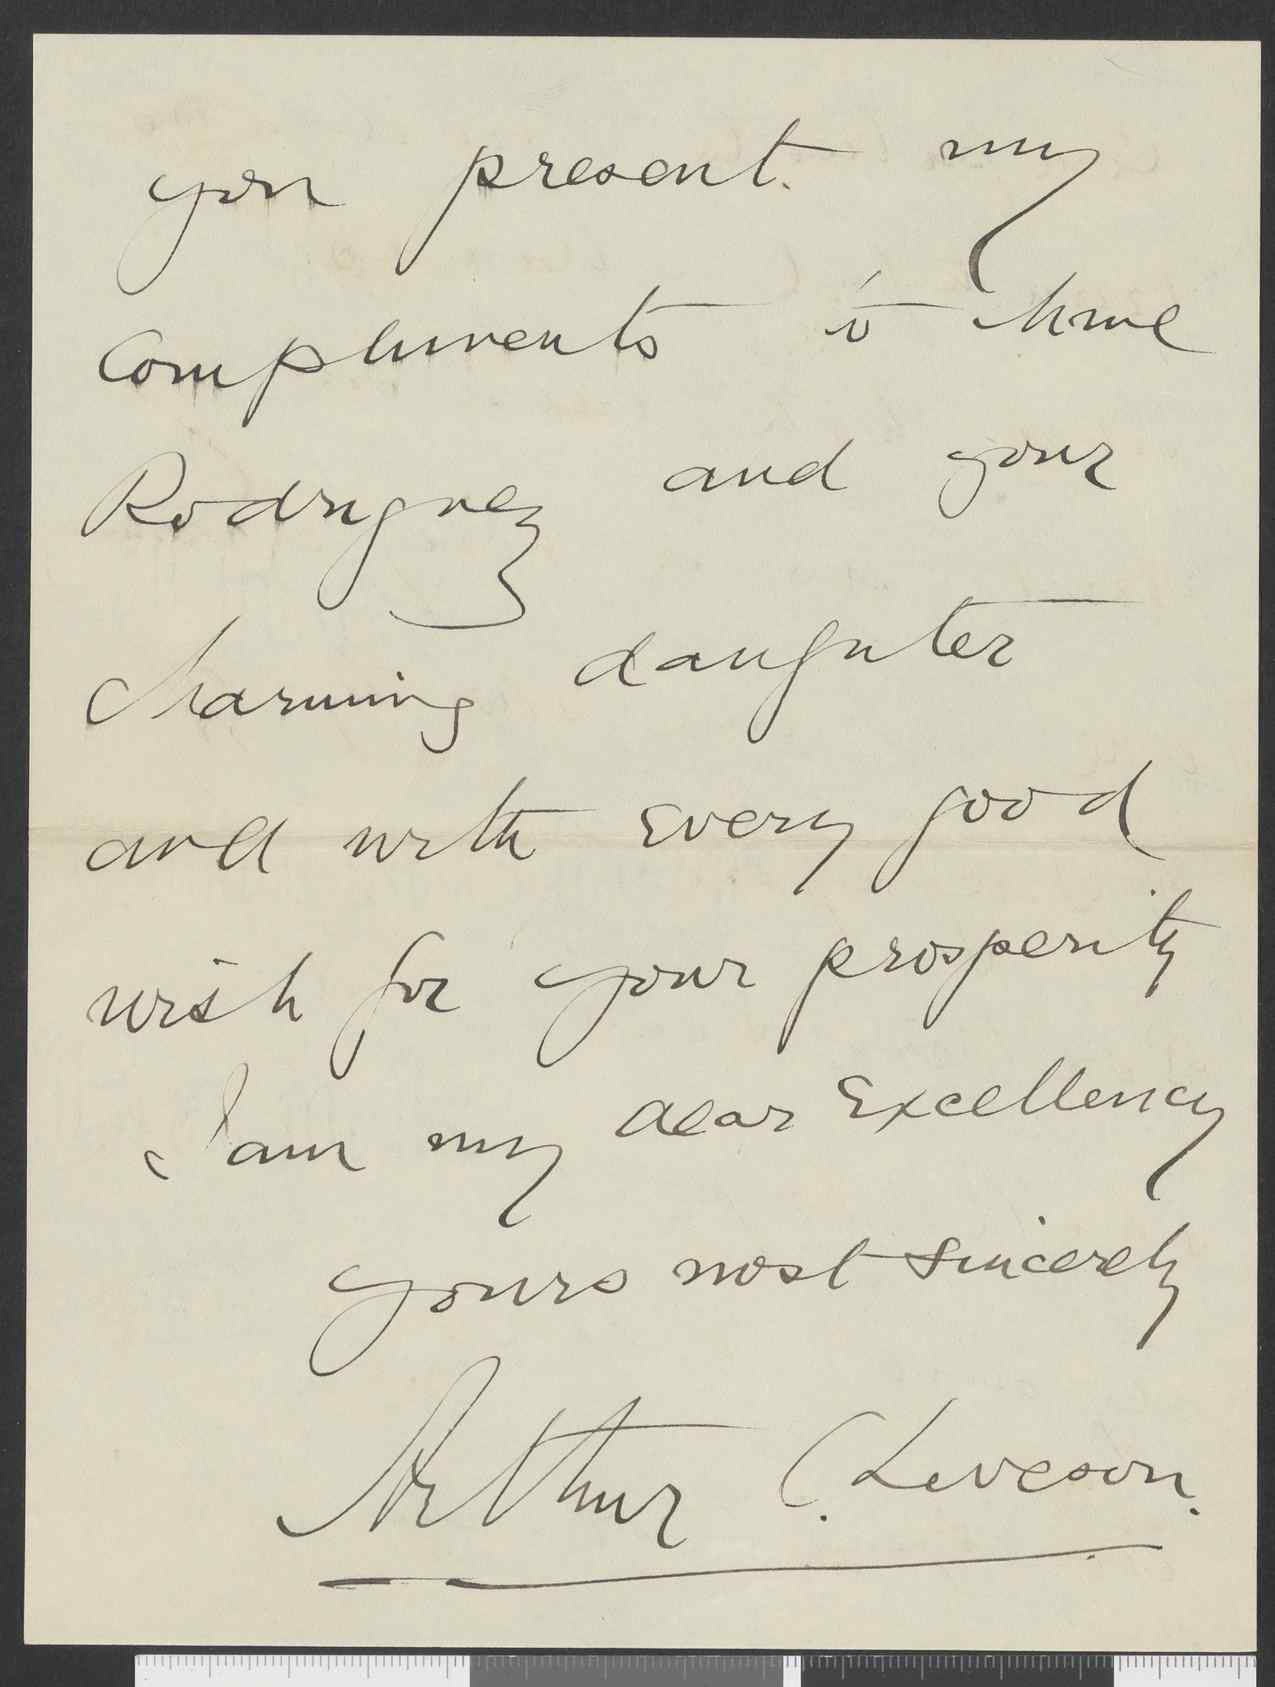 you present my
compliments to Mme
Rodriguez and your
charming daughter
and with every good
wish for your prosperity
I am my dear Excellency
yours most sincerely
Arthur C. Leveson.